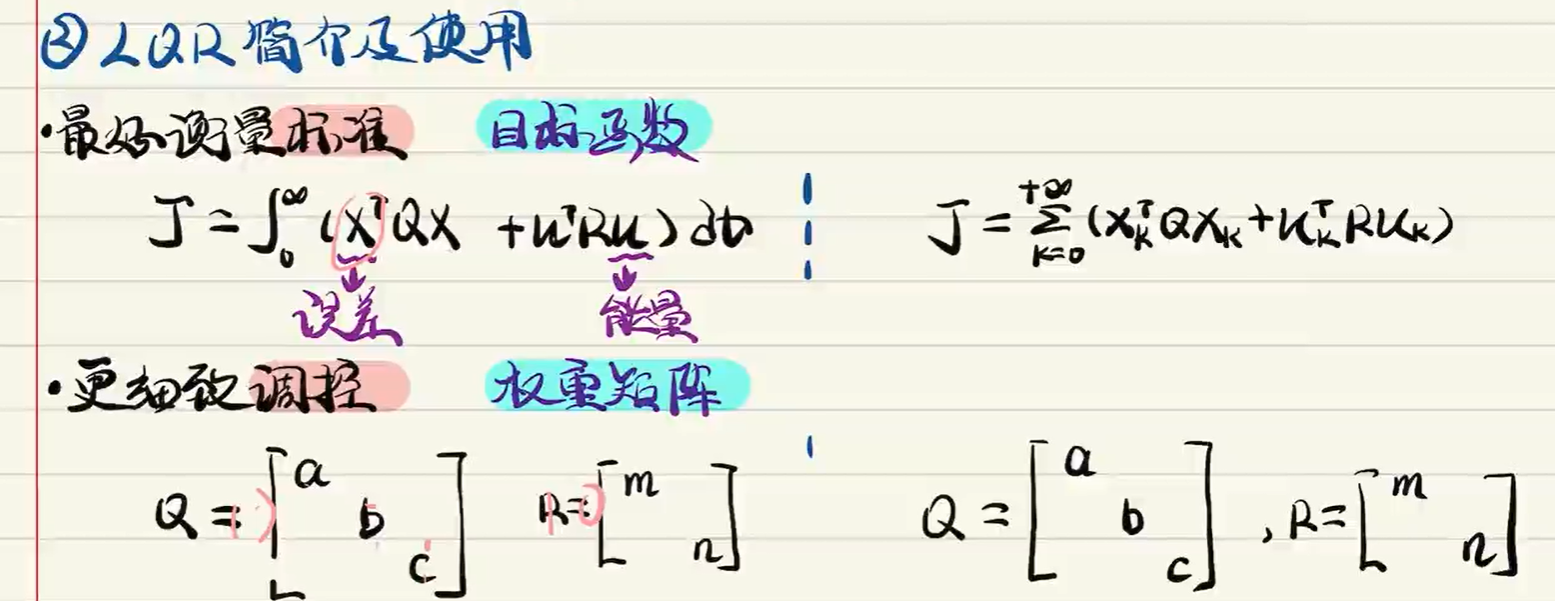 ② LQR 简介及使用
·最好衡量标准 目标函数
J = ∫₀^∞ (XᵀQX + uᵀRu) dt J = Σ_{k=0}^{+∞} (X_kᵀQX_k + u_kᵀRu_k)
误差 能量
·更细致调控 权重矩阵
Q = [a b c] R = [m n] Q = [a b c] , R = [m n]